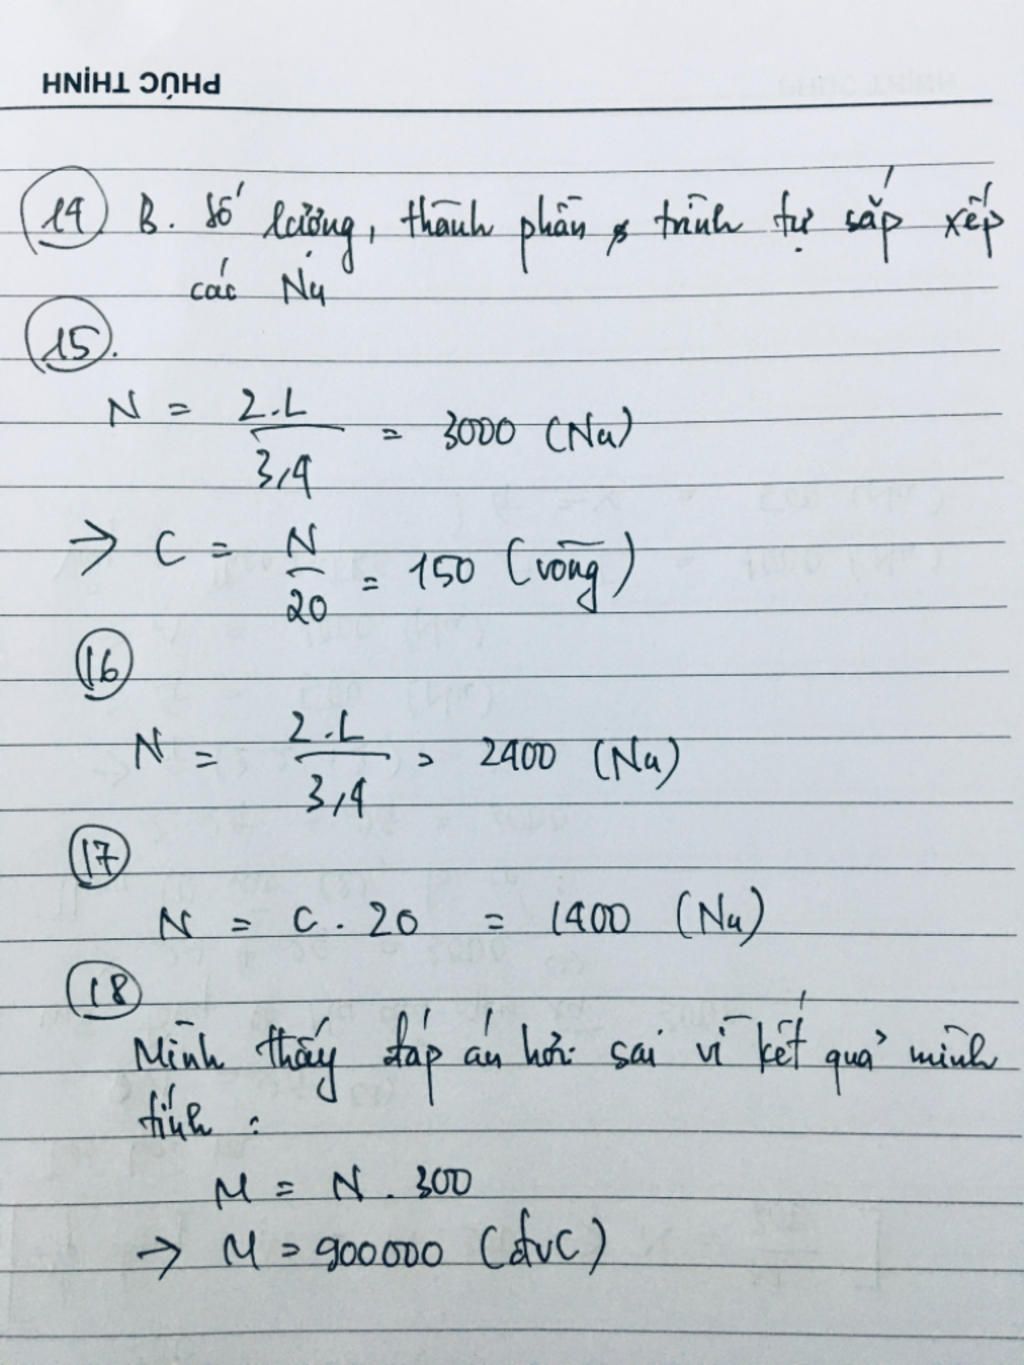 PHÚC THỊNH
14 B. Số lượng, thành phần & trình tự sắp xếp
các Nu
15.
N = 2.L / 3,4 = 3000 (Nu)
=> C = N / 20 = 150 (vòng)
16
N = 2.L / 3,4 = 2400 (Nu)
17
N = C . 20 = 1400 (Nu)
18
Mình thấy đáp án hơi sai vì kết quả mình
tính :
M = N . 300
→ M = 900000 (đvC)